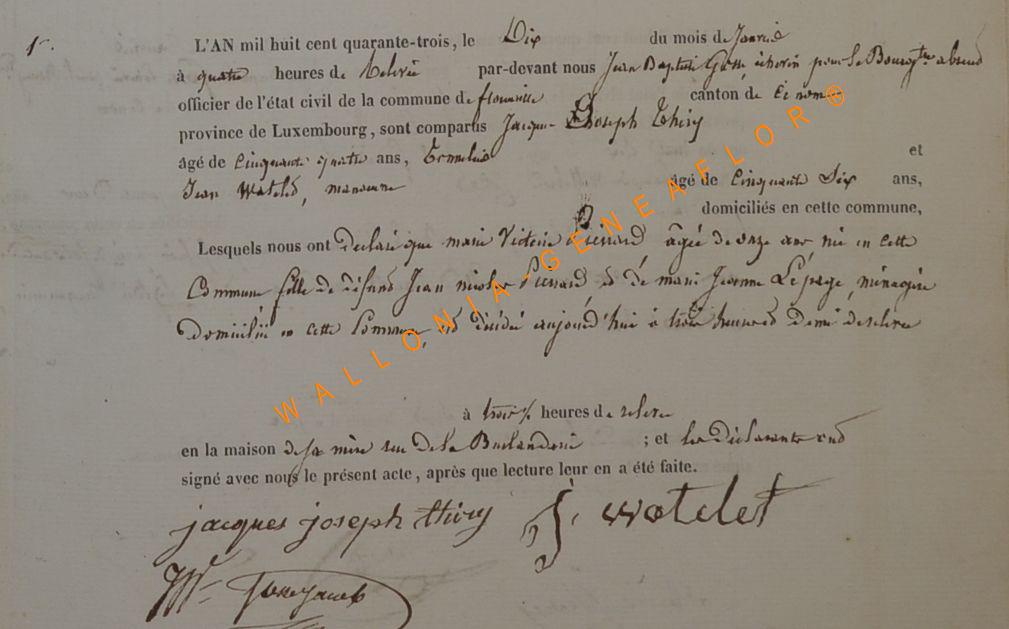 1.
L'AN mil huit cent quarante-trois, le Dix du mois de Janvier
à quatre heures de Relevée par-devant nous Jean Baptiste échevin pour le Bourgtre absend
officier de l'état civil de la commune de florenville canton de ci nom
province de Luxembourg, sont comparus Jacques Joseph Thiry
âgé de Cinquante quatre ans, et
Jean Watelet, manœuvre âgé de Cinquante Six ans,
domiciliés en cette commune,
Lesquels nous ont Declaré que marie Victoire Pierrard âgée de onze ans née en cette
Commune fille de défunt Jean nicolas Pierrard et de marie Jeanne Lépage, ménagère
domiciliée en cette Commune, est décédée aujourd'hui à trois heures et demi de relevée
à trois ½ heures de relevée
en la maison de sa mère rue de la ; et les déclarants ont
signé avec nous le présent acte, après que lecture leur en a été faite.
jacques joseph thiry J. watelet
WALLONIA-GENEAFLOR®